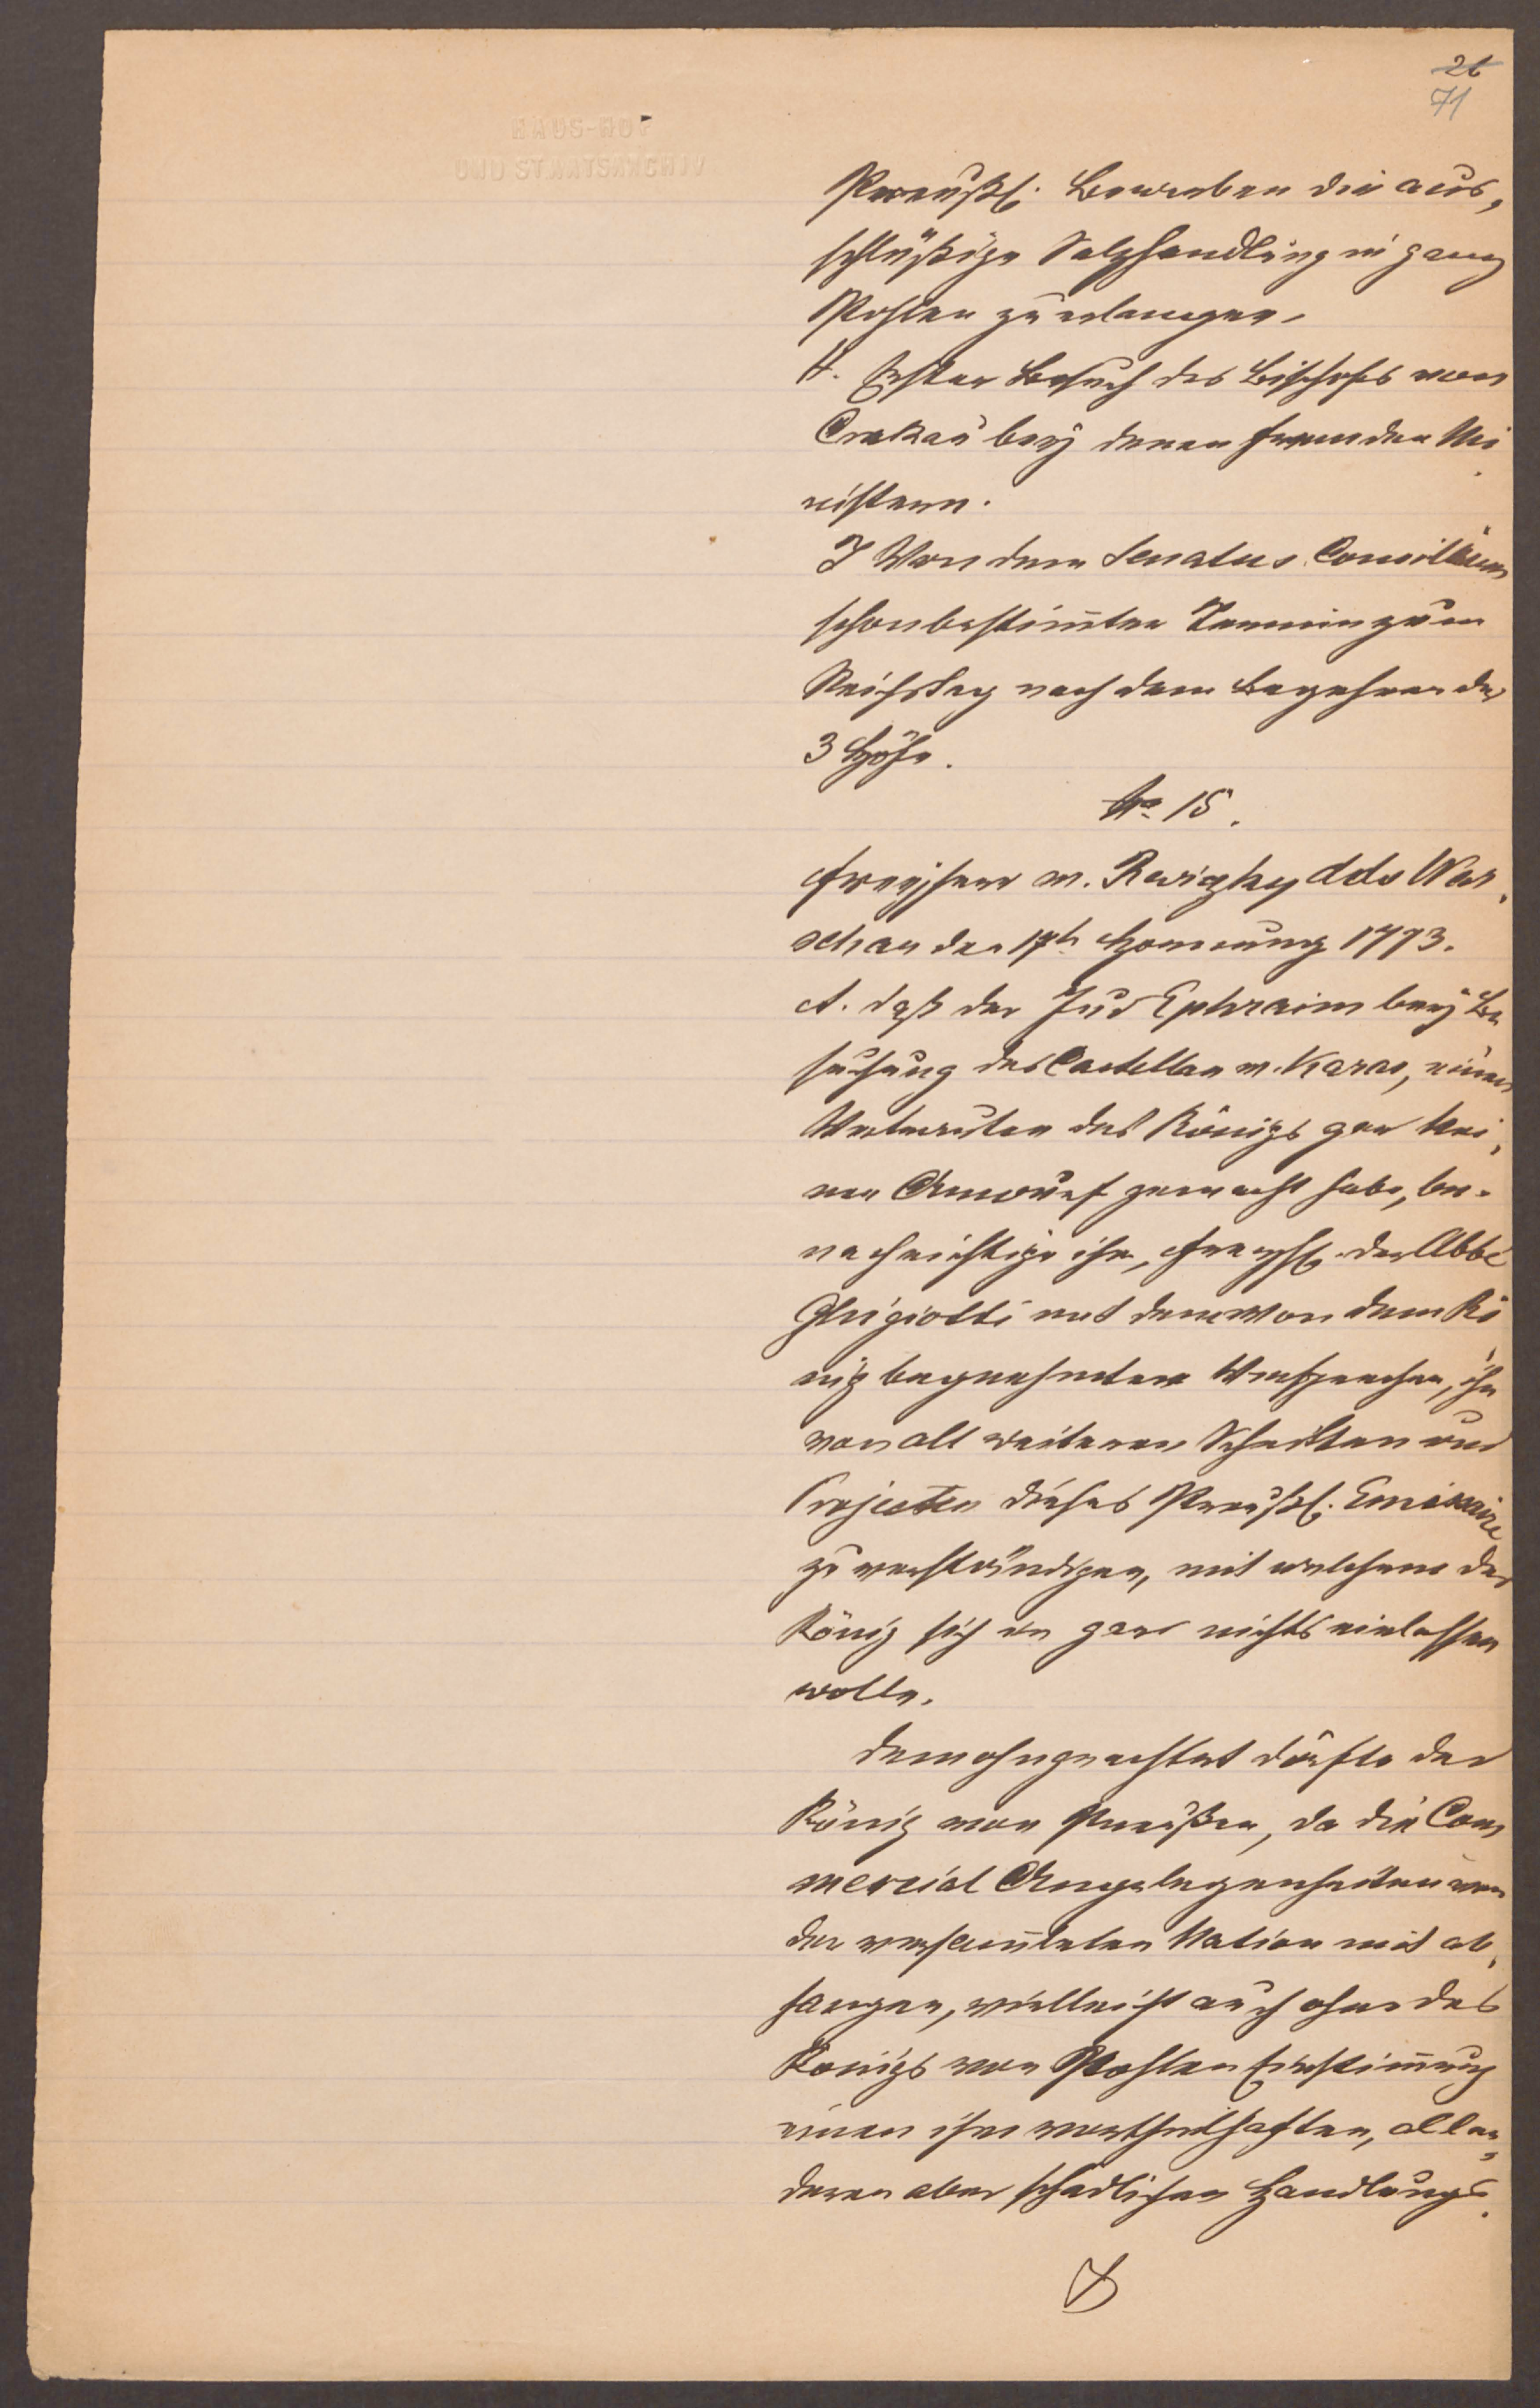 26
71
HAUS-HOF
UND STAATSARCHIV
Preußl. Bewerben die aus,
schlüßige Salzhandlung in ganz
Pohlen zu erlangen.
H. Erster Besuch des Bischofs von
Crakau beÿ denen fremden Mi
nistern.
J Von dem Senatus Consilium
schon bestim̄ter Termin zum
Reichstag nach dem Begehren der
3 Höfe.
No 15.
Freyherr v. Reviczky ddo War,
schau den 17t. Hornung 1773.
A. daß der Jud Ephraim beÿ Be
suchung des Castellan v. Karas, eines
Vertrauten des Königs gar kei,
nen Anwurf gemacht habe, be-
nachrichtige ihn, Freyh. der Abbé
Ghigiotti mit dem von dem Kö
nig begnehmten Versprechen, ihn
von all weiteren Schritten und
Projecten dieses Preußl. Emissaire
zu verständigen, mit welchem der
König sich in gar nichts einlassen
wolle.
Demohngeachtet dörfte der
König von Preußen, da die Com
mercial Angelegenheiten von
der versam̄leten Nation mit ab,
hangen, vielleicht auch ohne des
Königs von Pohlen Einstim̄ung
einen ihm vortheilhaften, allen,
deren aber schädlichen Handlungs-